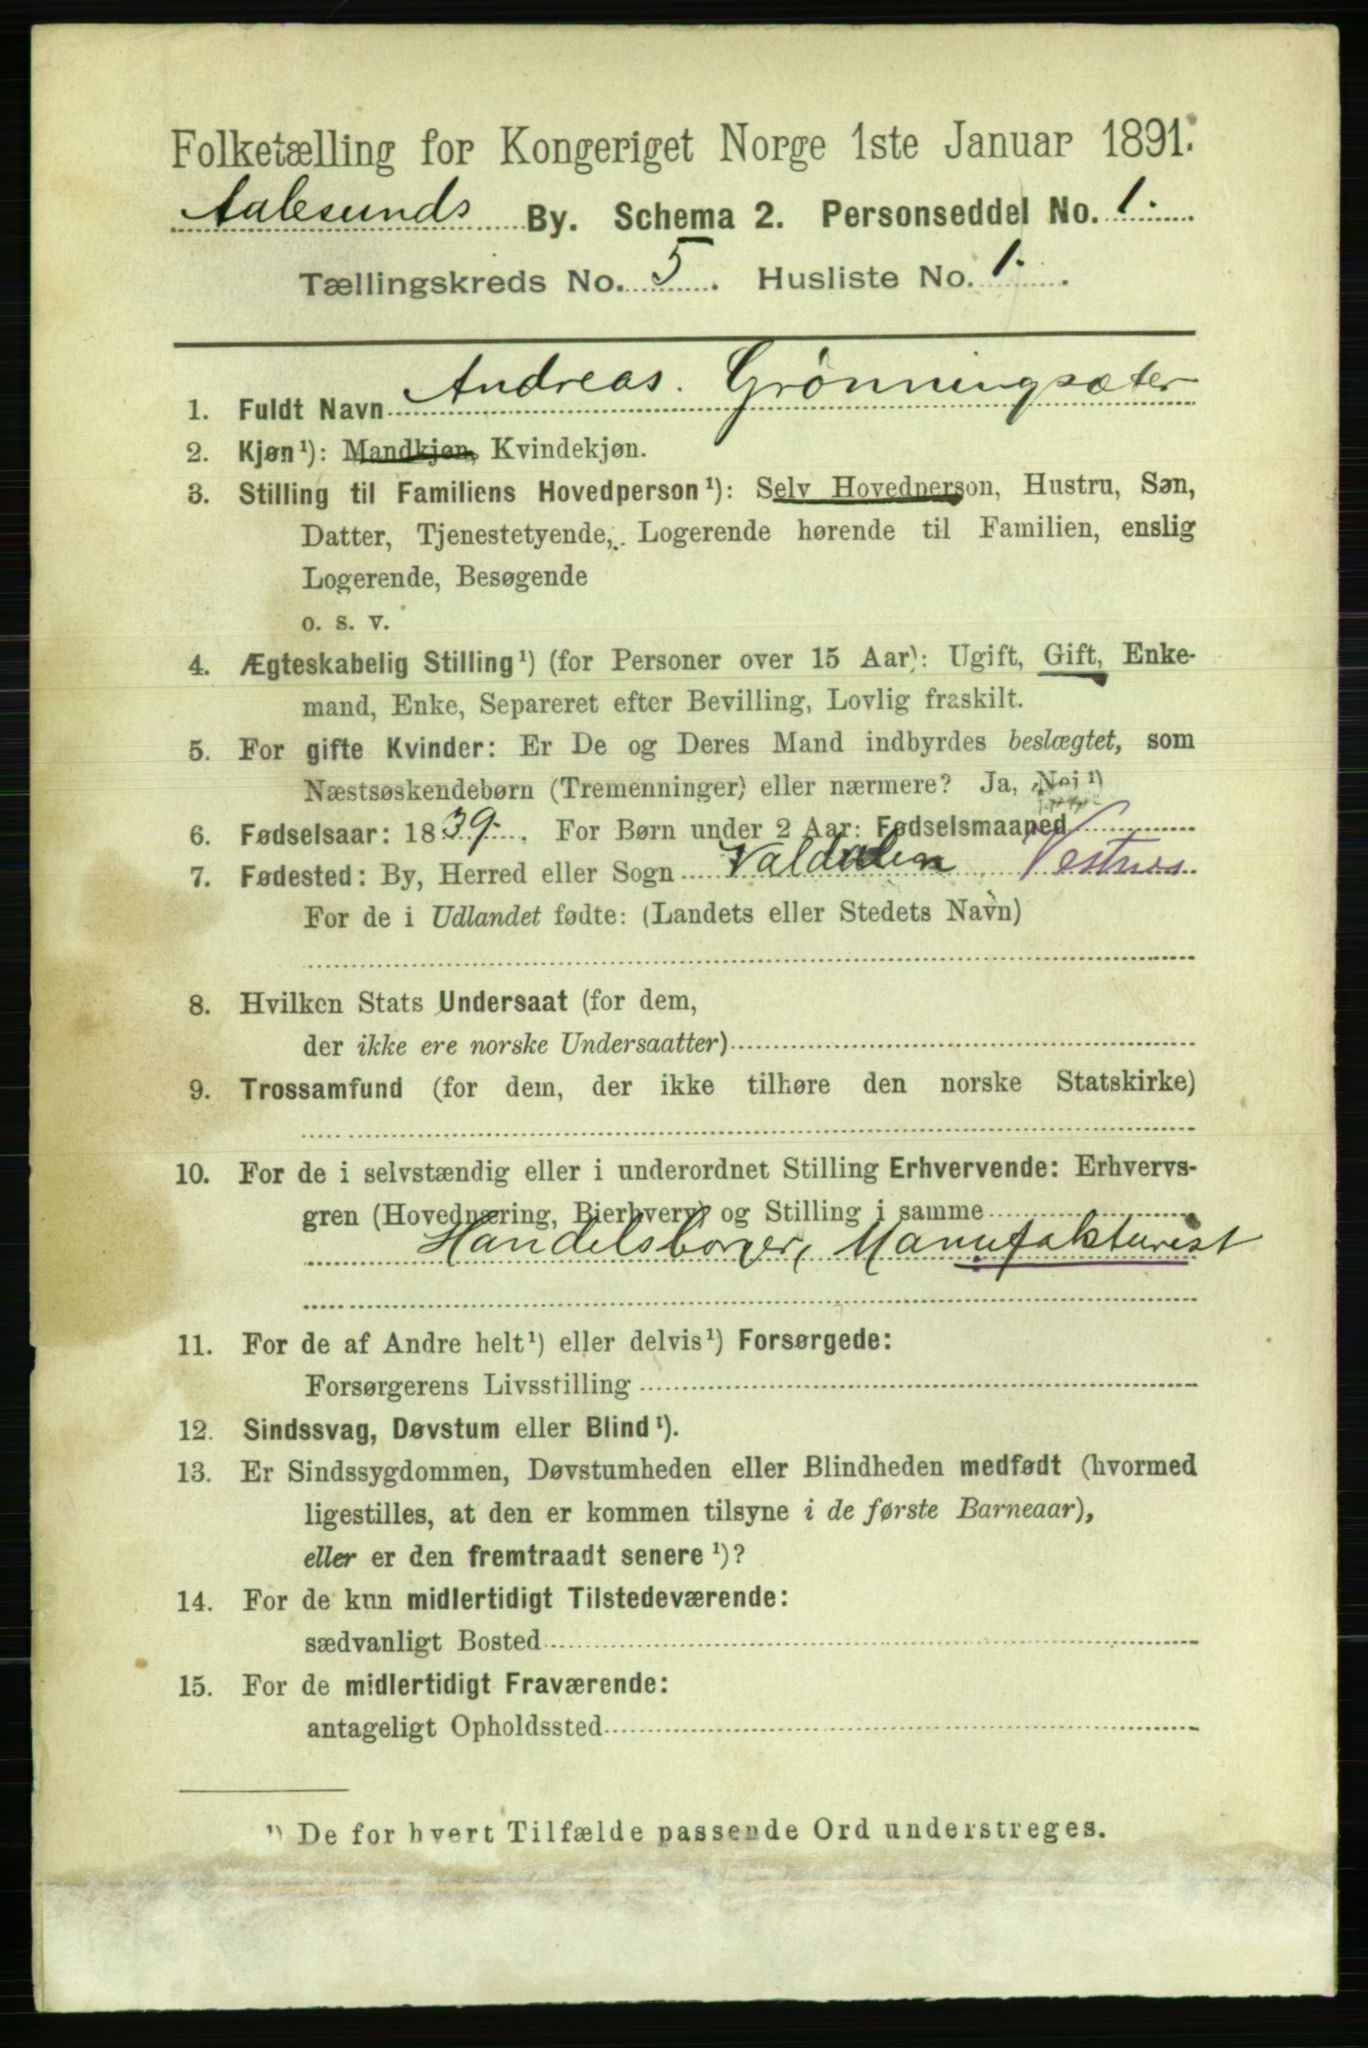 Folketælling for Kongeriget Norge 1ste Januar 1891.
Aalesunds By. Schema 2. Personseddel No. 1.
Tællingskreds No. 5. Husliste No. 1.
1. Fuldt Navn Andreas. Grönningsæter
2. Kjøn¹): Mandkjøn, Kvindekjøn.
3. Stilling til Familiens Hovedperson¹): Selv Hovedperson, Hustru, Søn,
Datter, Tjenestetyende, Logerende hørende til Familien, enslig
Logerende, Besøgende
o. s. v.
4. Ægteskabelig Stilling¹) (for Personer over 15 Aar): Ugift, Gift, Enke-
mand, Enke, Separeret efter Bevilling, Lovlig fraskilt.
5. For gifte Kvinder: Er De og Deres Mand indbyrdes beslægtet, som
Næstsøskendebørn (Tremenninger) eller nærmere? Ja, Nei ¹)
6. Fødselsaar: 1839. For Børn under 2 Aar: Fødselsmaaned
7. Fødested: By, Herred eller Sogn Valdalen Vestnes
For de i Udlandet fødte: (Landets eller Stedets Navn)
8. Hvilken Stats Undersaat (for dem,
der ikke ere norske Undersaatter)
9. Trossamfund (for dem, der ikke tilhøre den norske Statskirke)
10. For de i selvstændig eller i underordnet Stilling Erhvervende: Erhvervs-
gren (Hovednæring, Bierhverv) og Stilling i samme
Handelsborger, Manufakturist
11. For de af Andre helt¹) eller delvis¹) Forsørgede:
Forsørgerens Livsstilling
12. Sindssvag, Døvstum eller Blind¹).
13. Er Sindssygdommen, Døvstumheden eller Blindheden medfødt (hvormed
ligestilles, at den er kommen tilsyne i de første Barneaar),
eller er den fremtraadt senere ¹)?
14. For de kun midlertidigt Tilstedeværende:
sædvanligt Bosted
15. For de midlertidigt Fraværende:
antageligt Opholdssted
¹) De for hvert Tilfælde passende Ord understreges.